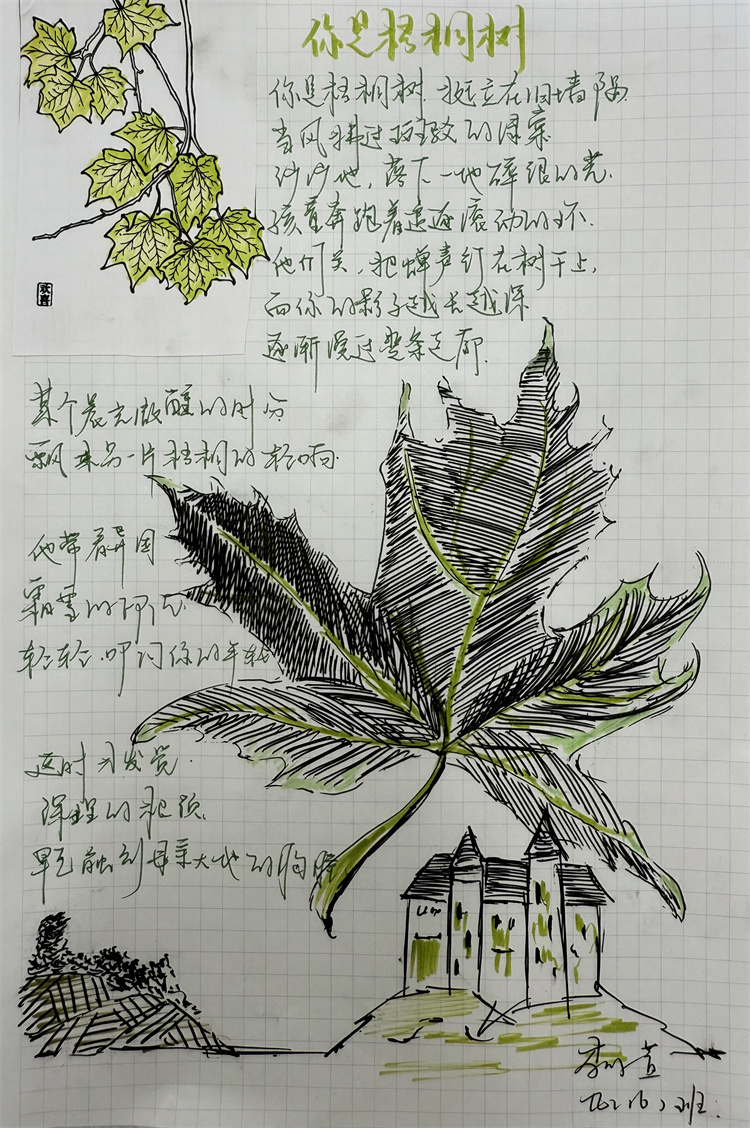 你是梧桐树
你是梧桐树,挺立在旧墙隅
当风拂过斑驳的浮窗
沙沙地,落下一地碎银的光.
孩童奔跑着追逐滚动的环.
他们笑,把蝉声钉在树干上,
而你的影子越长越深
逐渐漫过整条走廊.
某个晨光微醺的时分
飘来另一片梧桐的轻响.
他带着异国
霜雪的印记
轻轻叩问你的年轮
这时才发觉.
深埋的根须.
早已触到母亲大地的胸膛
欢喜
班.